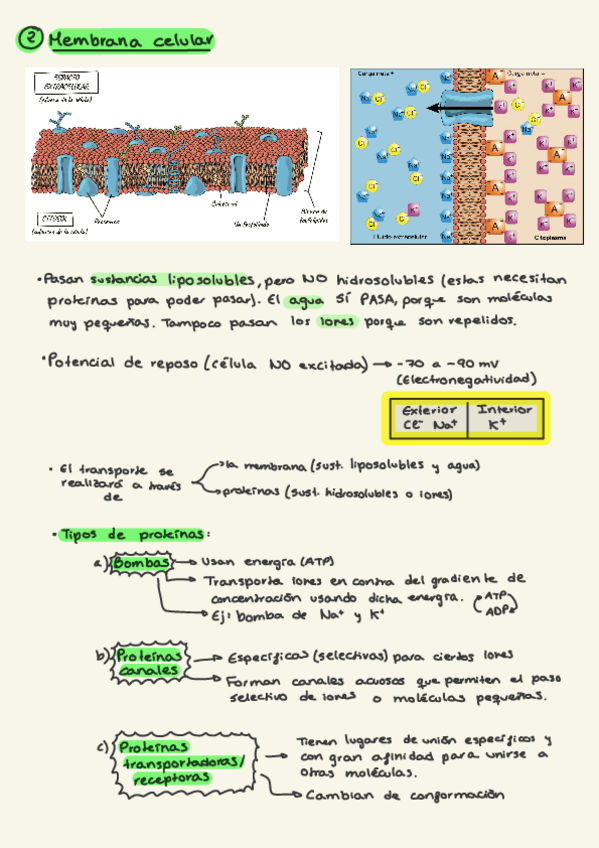 2 Membrana celular
ESPACIO
EXTRACELULAR
CITOSOL
Proteínas
Colesterol
Un fosfolípido
Bicapa de
fosfolípidos
Carga neta +
Carga neta –
Na+ Cl- K+ A-
Fluido extracelular
Citoplasma
• Pasan sustancias liposolubles, pero NO hidrosolubles (estas necesitan
proteínas para poder pasar). El agua SÍ PASA, porque son moléculas
muy pequeñas. Tampoco pasan los iones porque son repelidos.
• Potencial de reposo (célula NO excitada) → -70 a -90 mV
(Electronegatividad)
Exterior | Interior
Cl- Na+ | K+
• El transporte se
realizará a través
de
→ la membrana (sust. liposolubles y agua)
→ proteínas (sust. hidrosolubles o iones)
• Tipos de proteínas:
a) Bombas → Usan energía (ATP)
→ Transporta iones en contra del gradiente de
concentración usando dicha energía. ATP
ADP
→ Ej: bomba de Na+ y K+
b) Proteínas
canales
→ Específicas (selectivas) para ciertos iones
→ Forman canales acuosos que permiten el paso
selectivo de iones o moléculas pequeñas.
c) Proteínas
transportadoras/
receptoras
→ Tienen lugares de unión específicos y
con gran afinidad para unirse a
otras moléculas.
→ Cambian de conformación